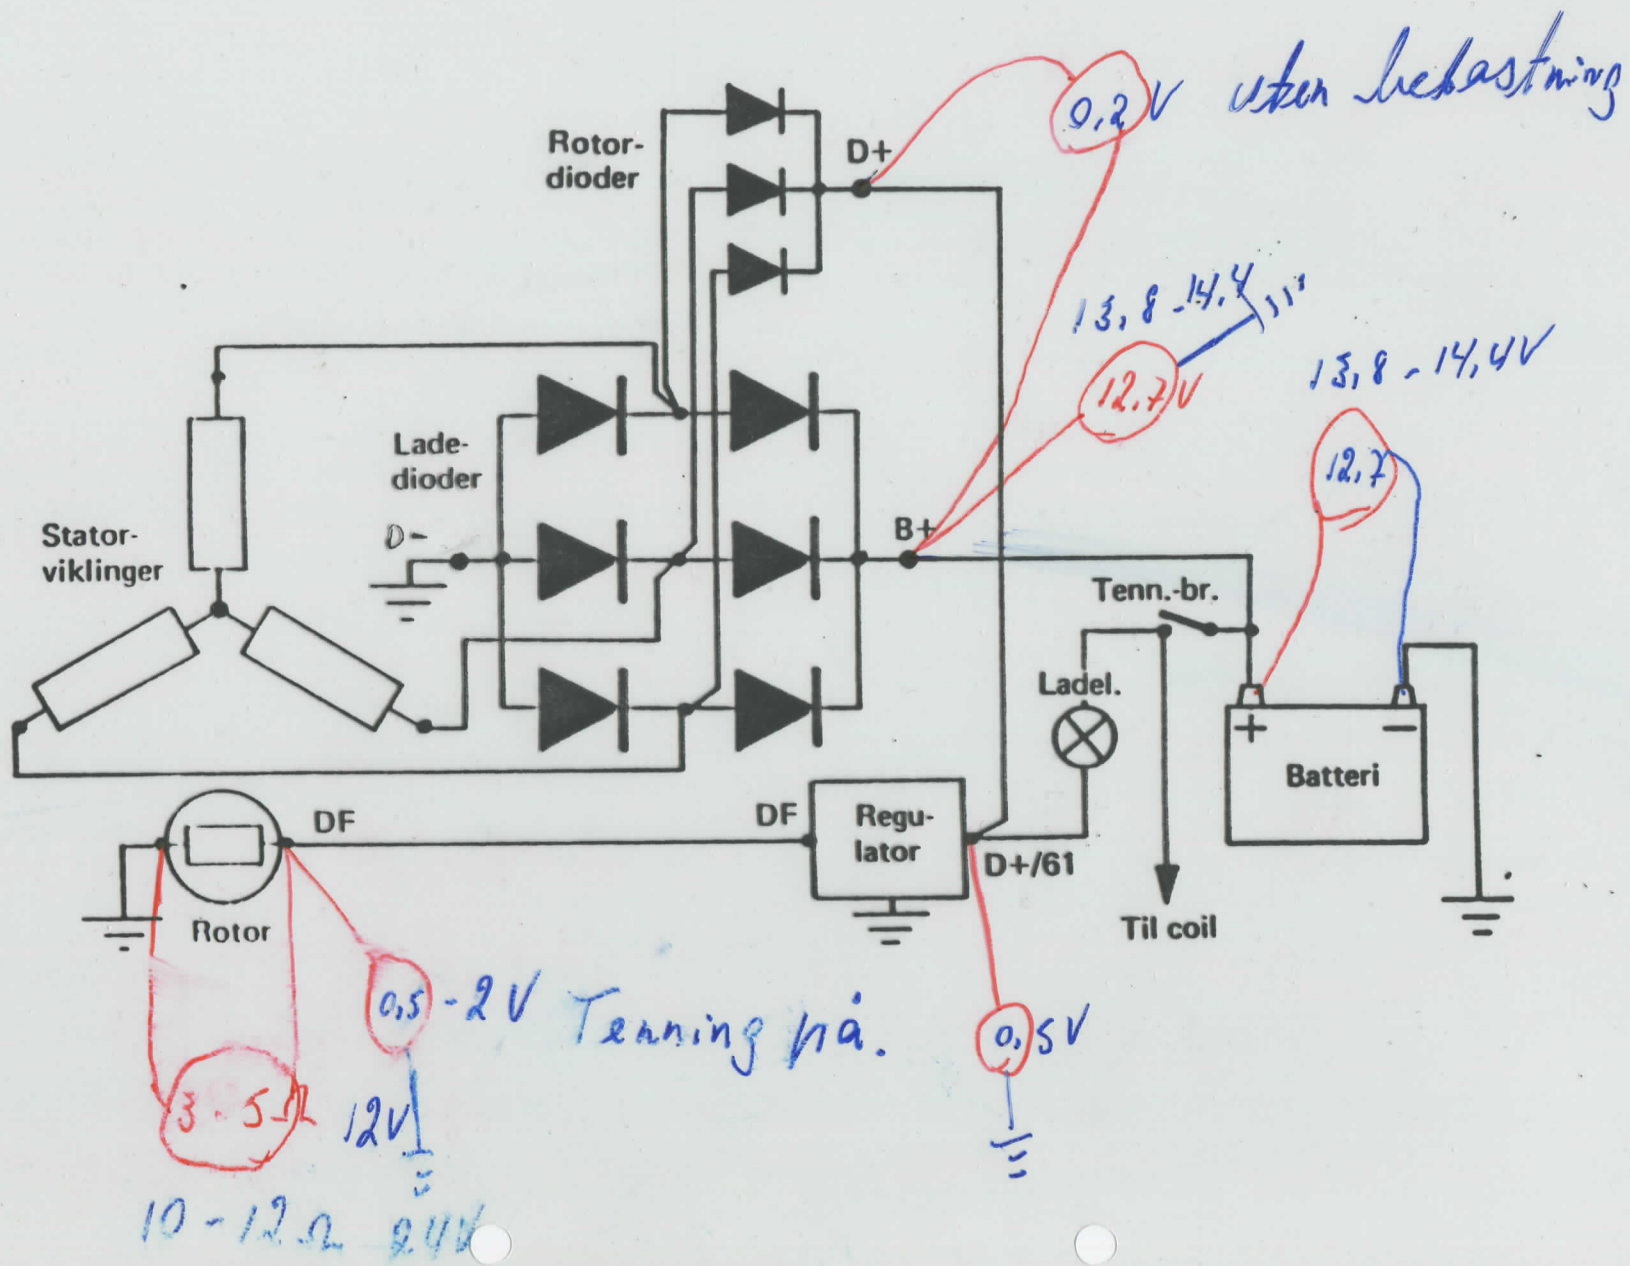 0,2 V uten belastning
Rotor-
dioder
D+
13,8-14,4
12,7 V
13,8 - 14,4V
12,7
Lade-
dioder
D-
B+
Stator-
viklinger
Tenn.-br.
Ladel.
+
−
Batteri
DF
DF
Regu-
lator
D+/61
Rotor
Til coil
0,5 - 2V Tenning på.
0,5V
3-5Ω 12V
10-12Ω 24V